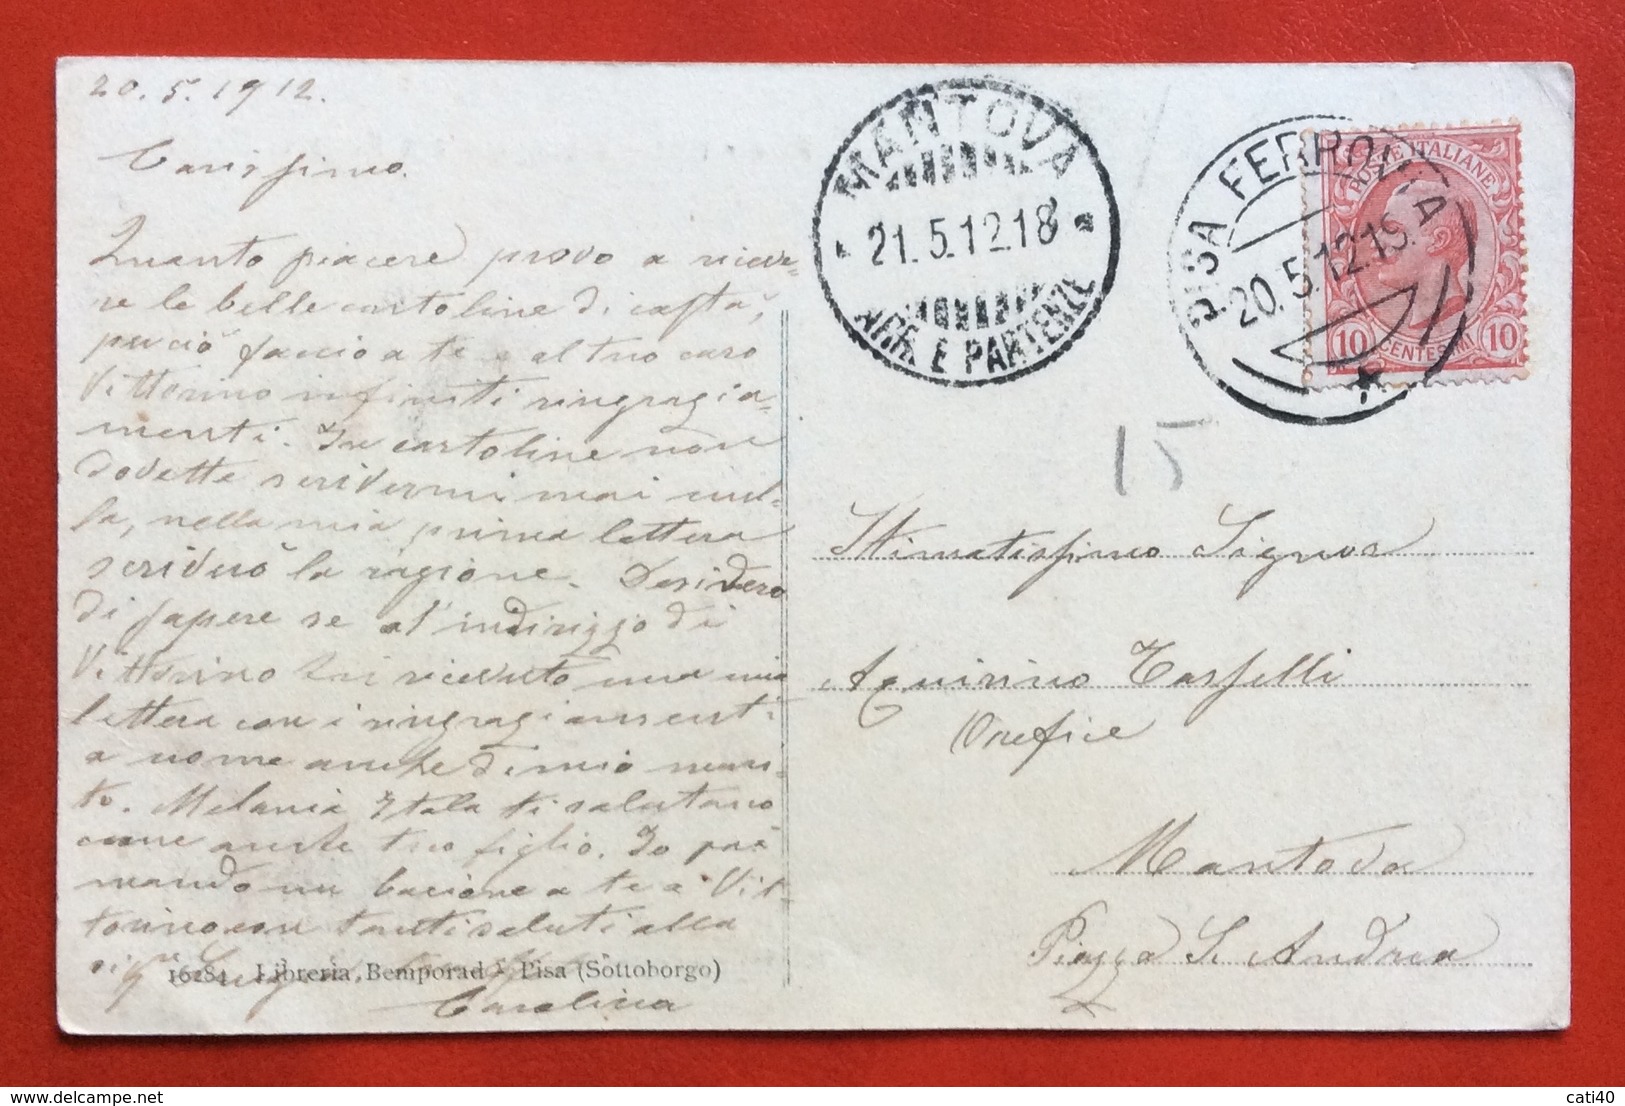 20.5.1912.
Carissimo.
Quanto piacere provo a riceve-
re le belle cartoline di costà,
perciò faccio a te e al tuo caro
Vittorino infiniti ringrazia-
menti. In cartoline non
dovette scrivermi mai nul-
la, nella mia prima lettera
scriverò la ragione. Desidero
di sapere se al'indirizzo di
Vittorino hai ricevuto una mia
lettera con i ringraziamenti
a nome anche di mio mari-
to. Melania Itala ti salutano
come anche tuo figlio. Io poi
mando un bacione a te a Vit-
torino con tanti saluti alla
Carolina
16284 Libreria Bemporad - Pisa (Sottoborgo)
MANTOVA
21.5.12.18
ARR. E PARTENZE
PISA FERROVIA
20.5.12.19
POSTE ITALIANE
10 CENTESIMI 10
15
Stimatissimo Signor
Aquirino Tasselli
Orefice
Mantova
Piazza S. Andrea
cati40